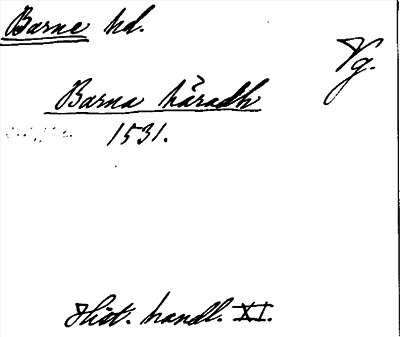 Barne hd.
Vg.
Barna häradh
1531.
Hist. handl. XI.